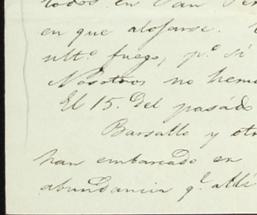 todos en San
en que alojarse.
ult.º fuego, p.º si
Nosotros no hemo
El 15. del pasado
Barsallo y otr
han embarcado en
abundancia q.e alli